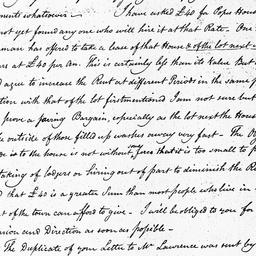 ments whatsoever — I have asked £40 for Popes Hous
not yet found any one who will hire it at that Rate — One
has offered to take a lease of that House & of the lot next
at £40 per Ann. This is certainly less than its Value But
agree to increase the Rent at different Periods in the same p
tion with that of the lot first mentioned I am not sure but
prove a saving Bargain, especially as the lot next the Hous
outside of those filled up washes away very fast — The
to the house is not without force that it is too small to p
taking of lodgers or hiring out of part to diminish the R
that £40 is a greater Sum than most people who live in
t of the town can afford to give — I will be obliged to you for
nion and Direction as soon as possible —
The Duplicate of your Letter to Mr Lawrence was sent by